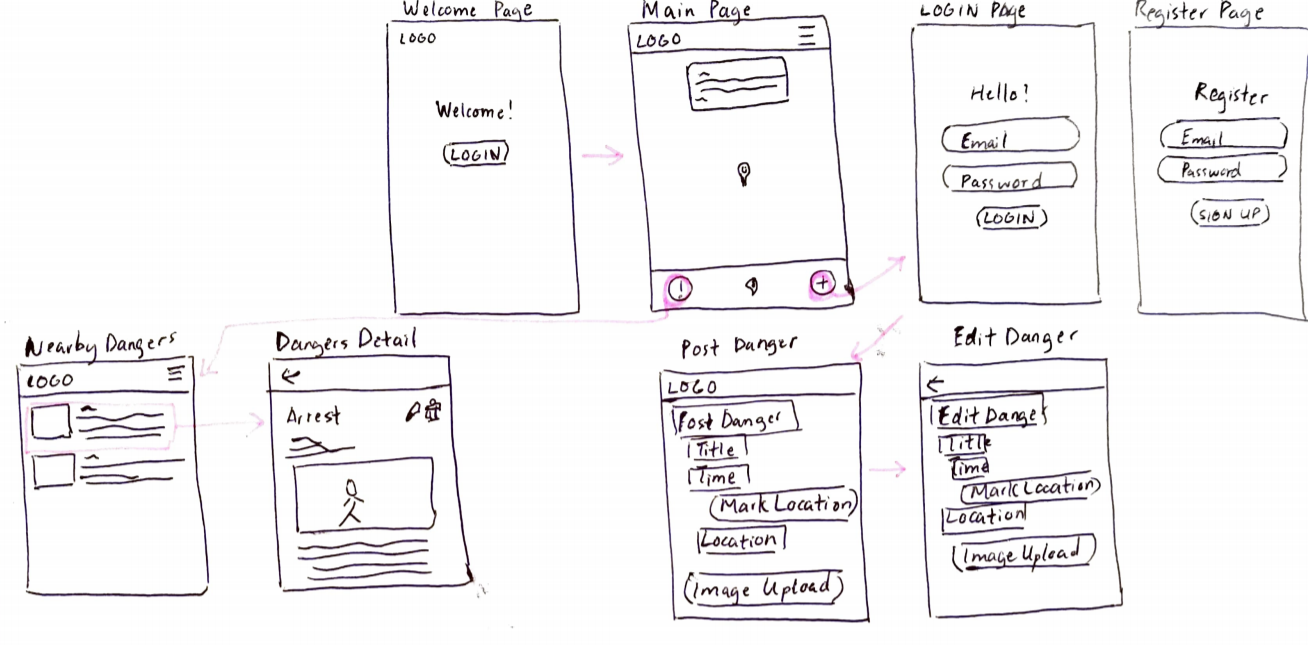 Welcome Page
LOGO
Welcome!
LOGIN
Main Page
LOGO
!
+
LOGIN Page
Hello?
Email
Password
LOGIN
Register Page
Register
Email
Password
SIGN UP
Nearby Dangers
LOGO
Dangers Detail
Arrest
Post Danger
LOGO
Post Danger
Title
Time
Mark Location
Location
Image Upload
Edit Danger
Edit Danger
Title
Time
Mark Location
Location
Image Upload